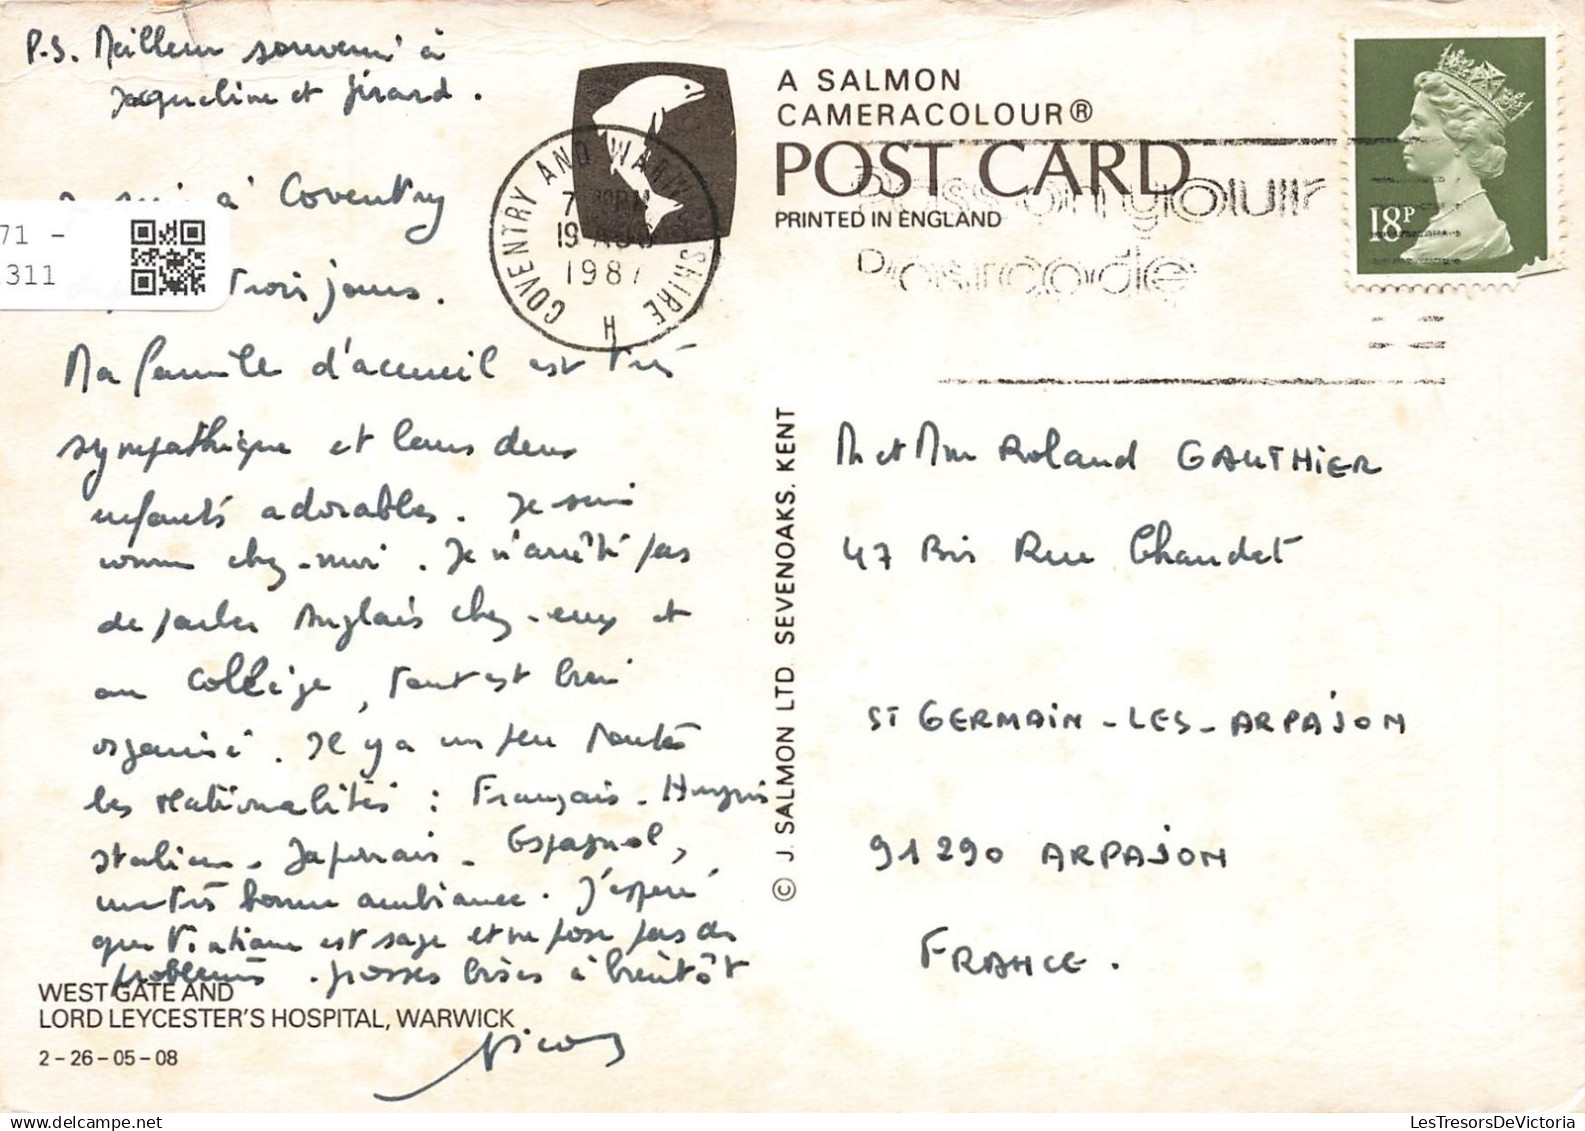 P.S. Meilleur souvenir à
Jacqueline et Girard.
suis à Coventry
71 -
311
trois jours.
Ma famille d'accueil est très
sympathique et leurs deux
enfants adorables. Je suis
comme chez-moi. Je n'arrête pas
de parler Anglais chez-eux et
au collège, tout est bien
organisé. Il y a un peu toutes
les nationalités : Français -
Italien - Japonais - Espagnol,
une très bonne ambiance. J'espère
que est sage et ne pose pas de
problèmes. grosses bises à bientôt
Nicolas
WEST GATE AND
LORD LEYCESTER'S HOSPITAL, WARWICK
2-26-05-08
COVENTRY AND WARWICKSHIRE H
19 AUG
1987
A SALMON
CAMERACOLOUR®
POST CARD
PRINTED IN ENGLAND
Pass on your
Postcode
18P
© J. SALMON LTD. SEVENOAKS. KENT
M et Mme Roland GAUTHIER
47 Bis Rue Chaudet
ST GERMAIN-LES-ARPAJON
91290 ARPAJON
FRANCE.
LesTresorsDeVictoria.com